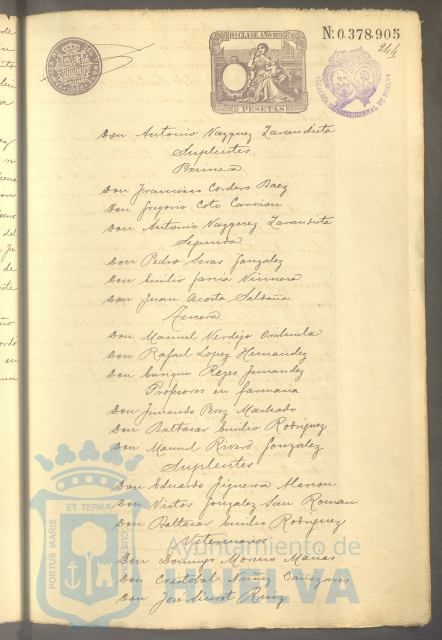 11ª CLASE AÑO 1895
PESETAS
Nº 0.378.905
244
Don Antonio Vazquez Zarandieta
Suplentes
Primera
Don Francisco Cordero Baez
Don Gregorio Coto Carrion
Don Antonio Vazquez Zarandieta
Segunda
Don Pedro Seras Gonzalez
Don Emilio Garcia
Don Juan Acosta Saldaña
Tercera
Don Manuel Verdejo Orihuela
Don Rafael Lopez Hernandez
Don Enrique Reyes Fernandez
Profesores en farmacia
Don Fernando Perez Machado
Don Baltasar Emilio Rodriguez
Don Manuel Rivero Gonzalez
Suplentes
Don Eduardo Figueroa
Don Victor Gonzalez San Roman
Don Baltasar Emilio Rodriguez
Veterinarios
Don Domingo Moreno Macias
Don Cristobal Nuñez Cañizares
Don José Ruiz
PORTUS MARIS ET TERRAE CUSTODIA
Ayuntamiento de
HUELVA